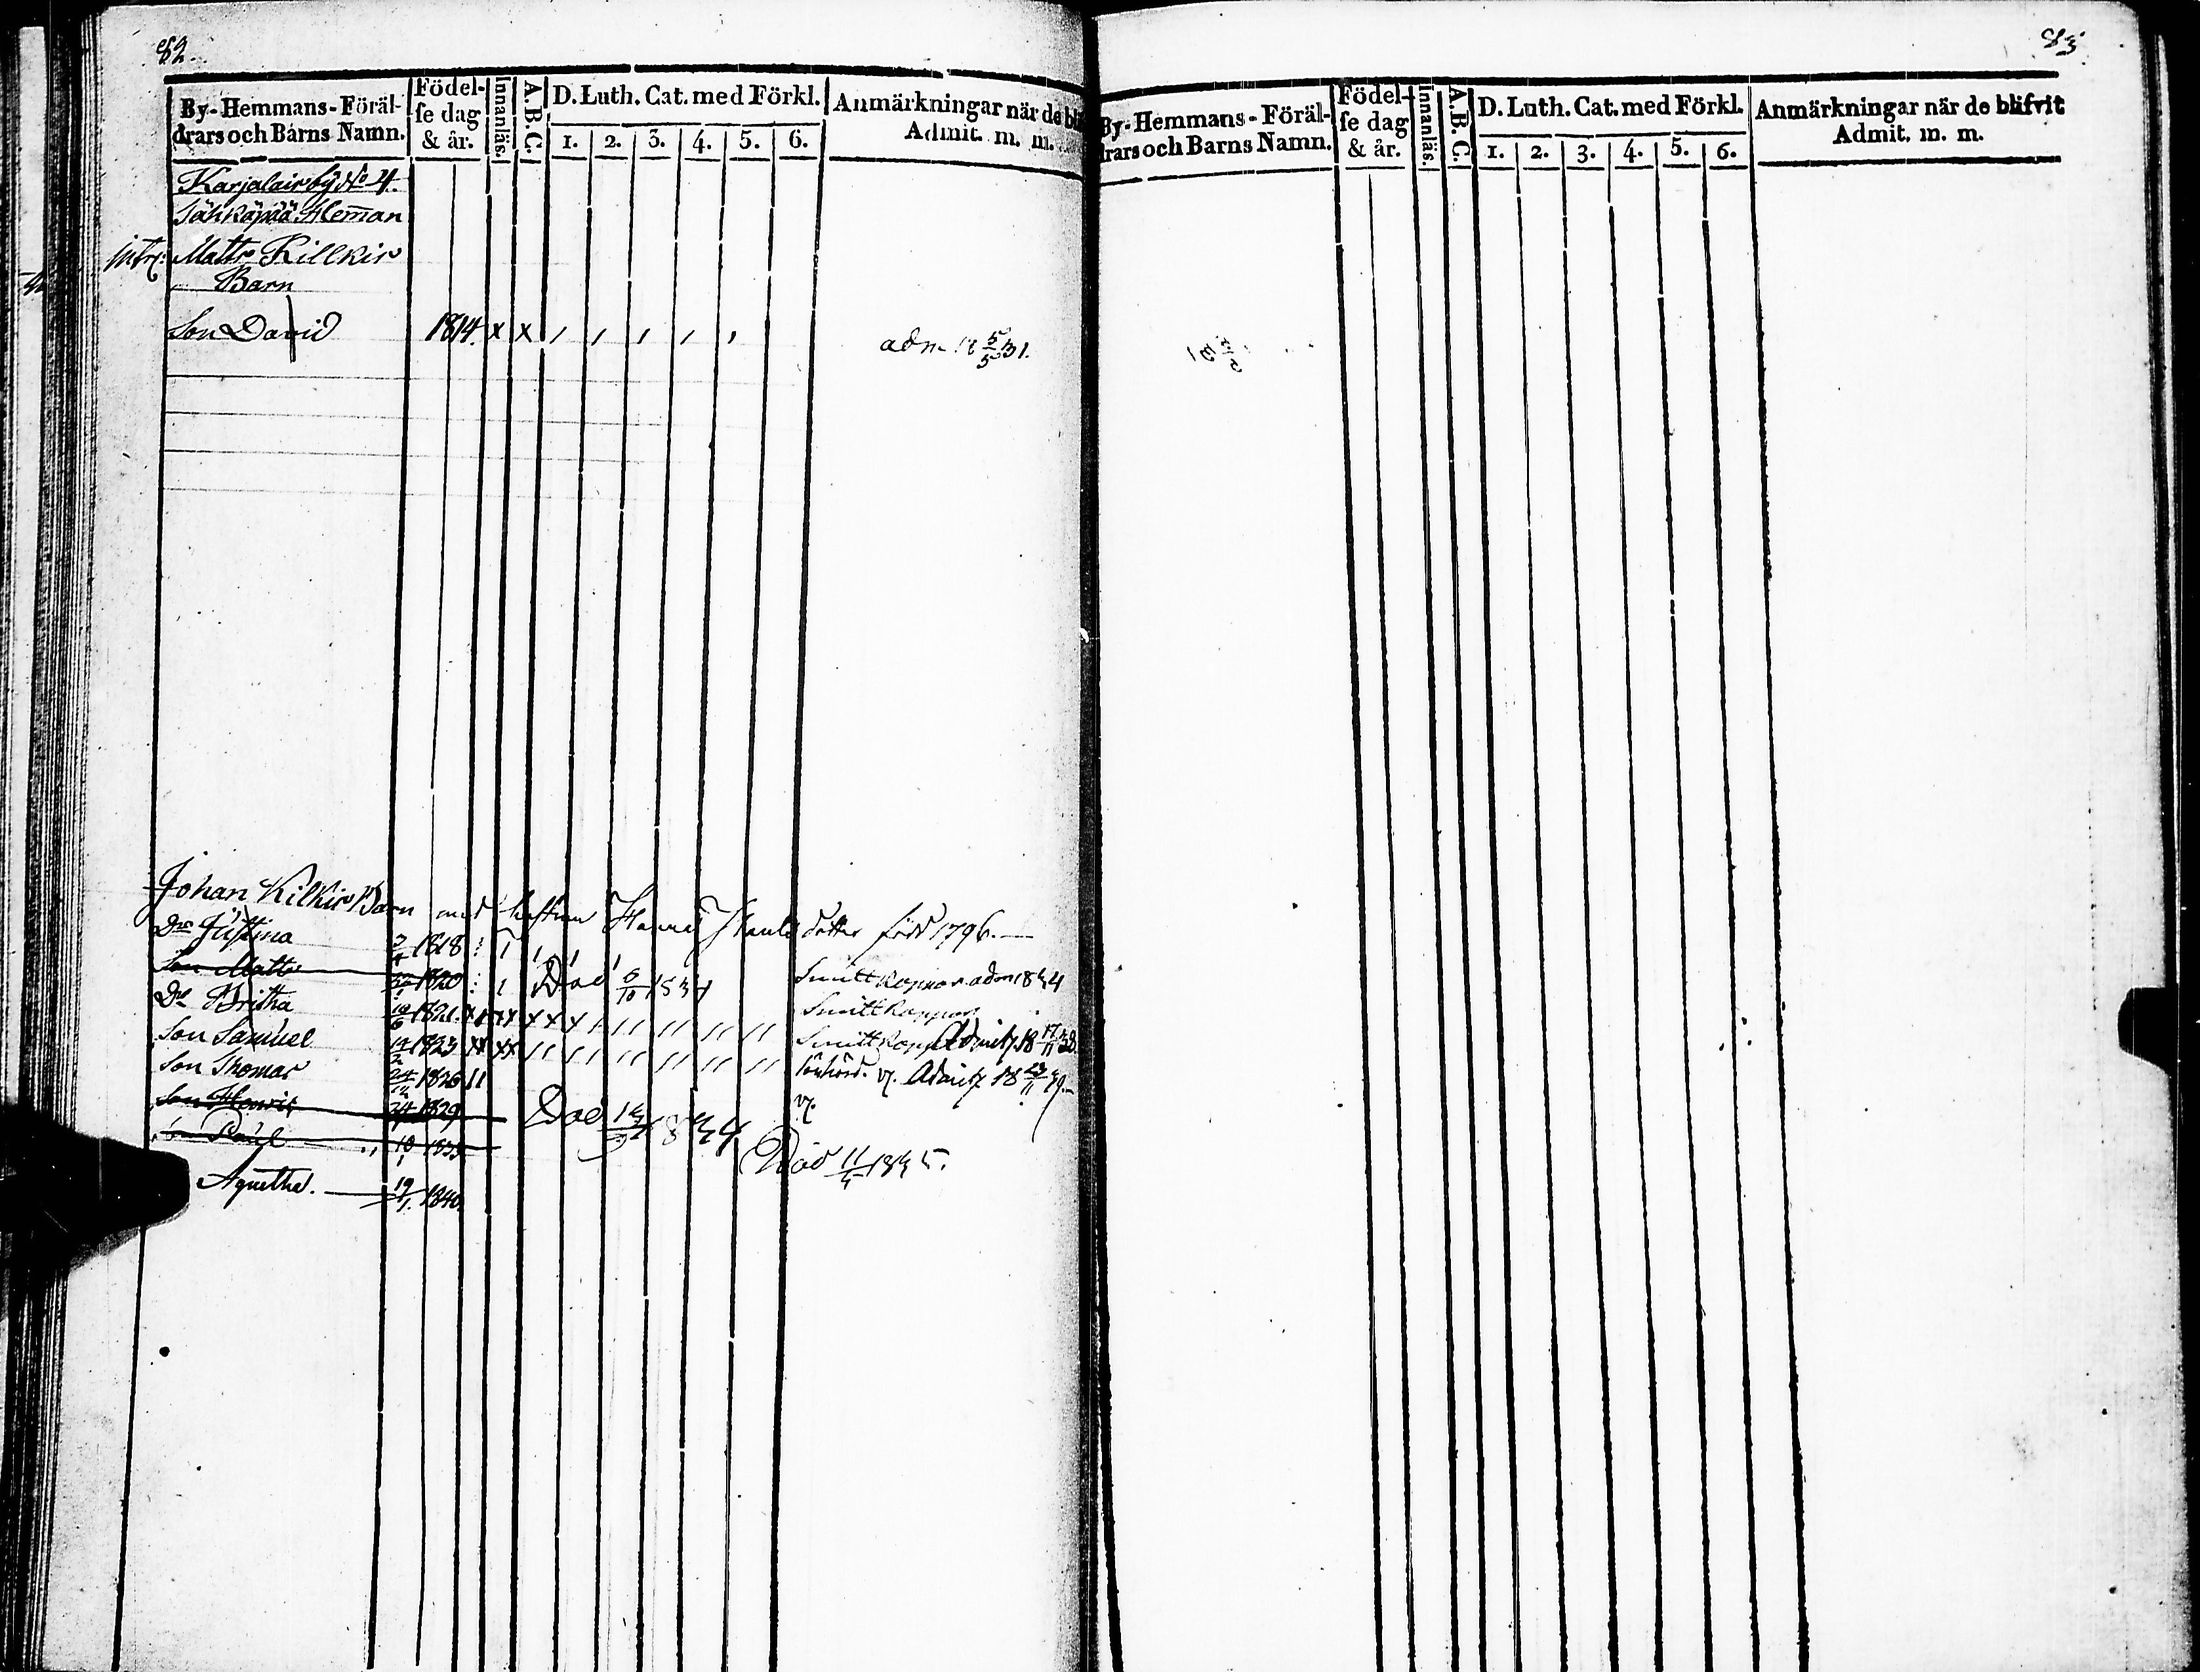 82.
By-Hemmans-Föräl-
drars och Barns Namn.
Födel-
se dag
& år.
Innanläs.
A.B.C.
D. Luth. Cat. med Förkl.
1. 2. 3. 4. 5. 6.
Anmärkningar när de bli
Admit. m. m.
Karjalais by No 4.
Säkkäpää Heman
Matts Killkis
Barn
Son David 1814. x x / / / / / adm 18 5/5 31.
Johan Kilkis Barn med hustrun dotter född 1796.
Dr Justina 1818
Son Matts 1820 Död Smittkoppor adm 1834
Dr Britha 1821. Smittkoppor
Son Samuel 1823 Smittkopp Admitt. 18 17/11 38.
Son Thomas 1826 Admitt 18
Son Henric 24 1829 Död 1834
Son Paul 10/1 1835 Död 11/4 1835.
Agnetha. 19/1. 1840.
83
By-Hemmans-Föräl-
drars och Barns Namn.
Födel-
se dag
& år.
Innanläs.
A.B.C.
D. Luth. Cat. med Förkl.
1. 2. 3. 4. 5. 6.
Anmärkningar när de blifvit
Admit. m. m.